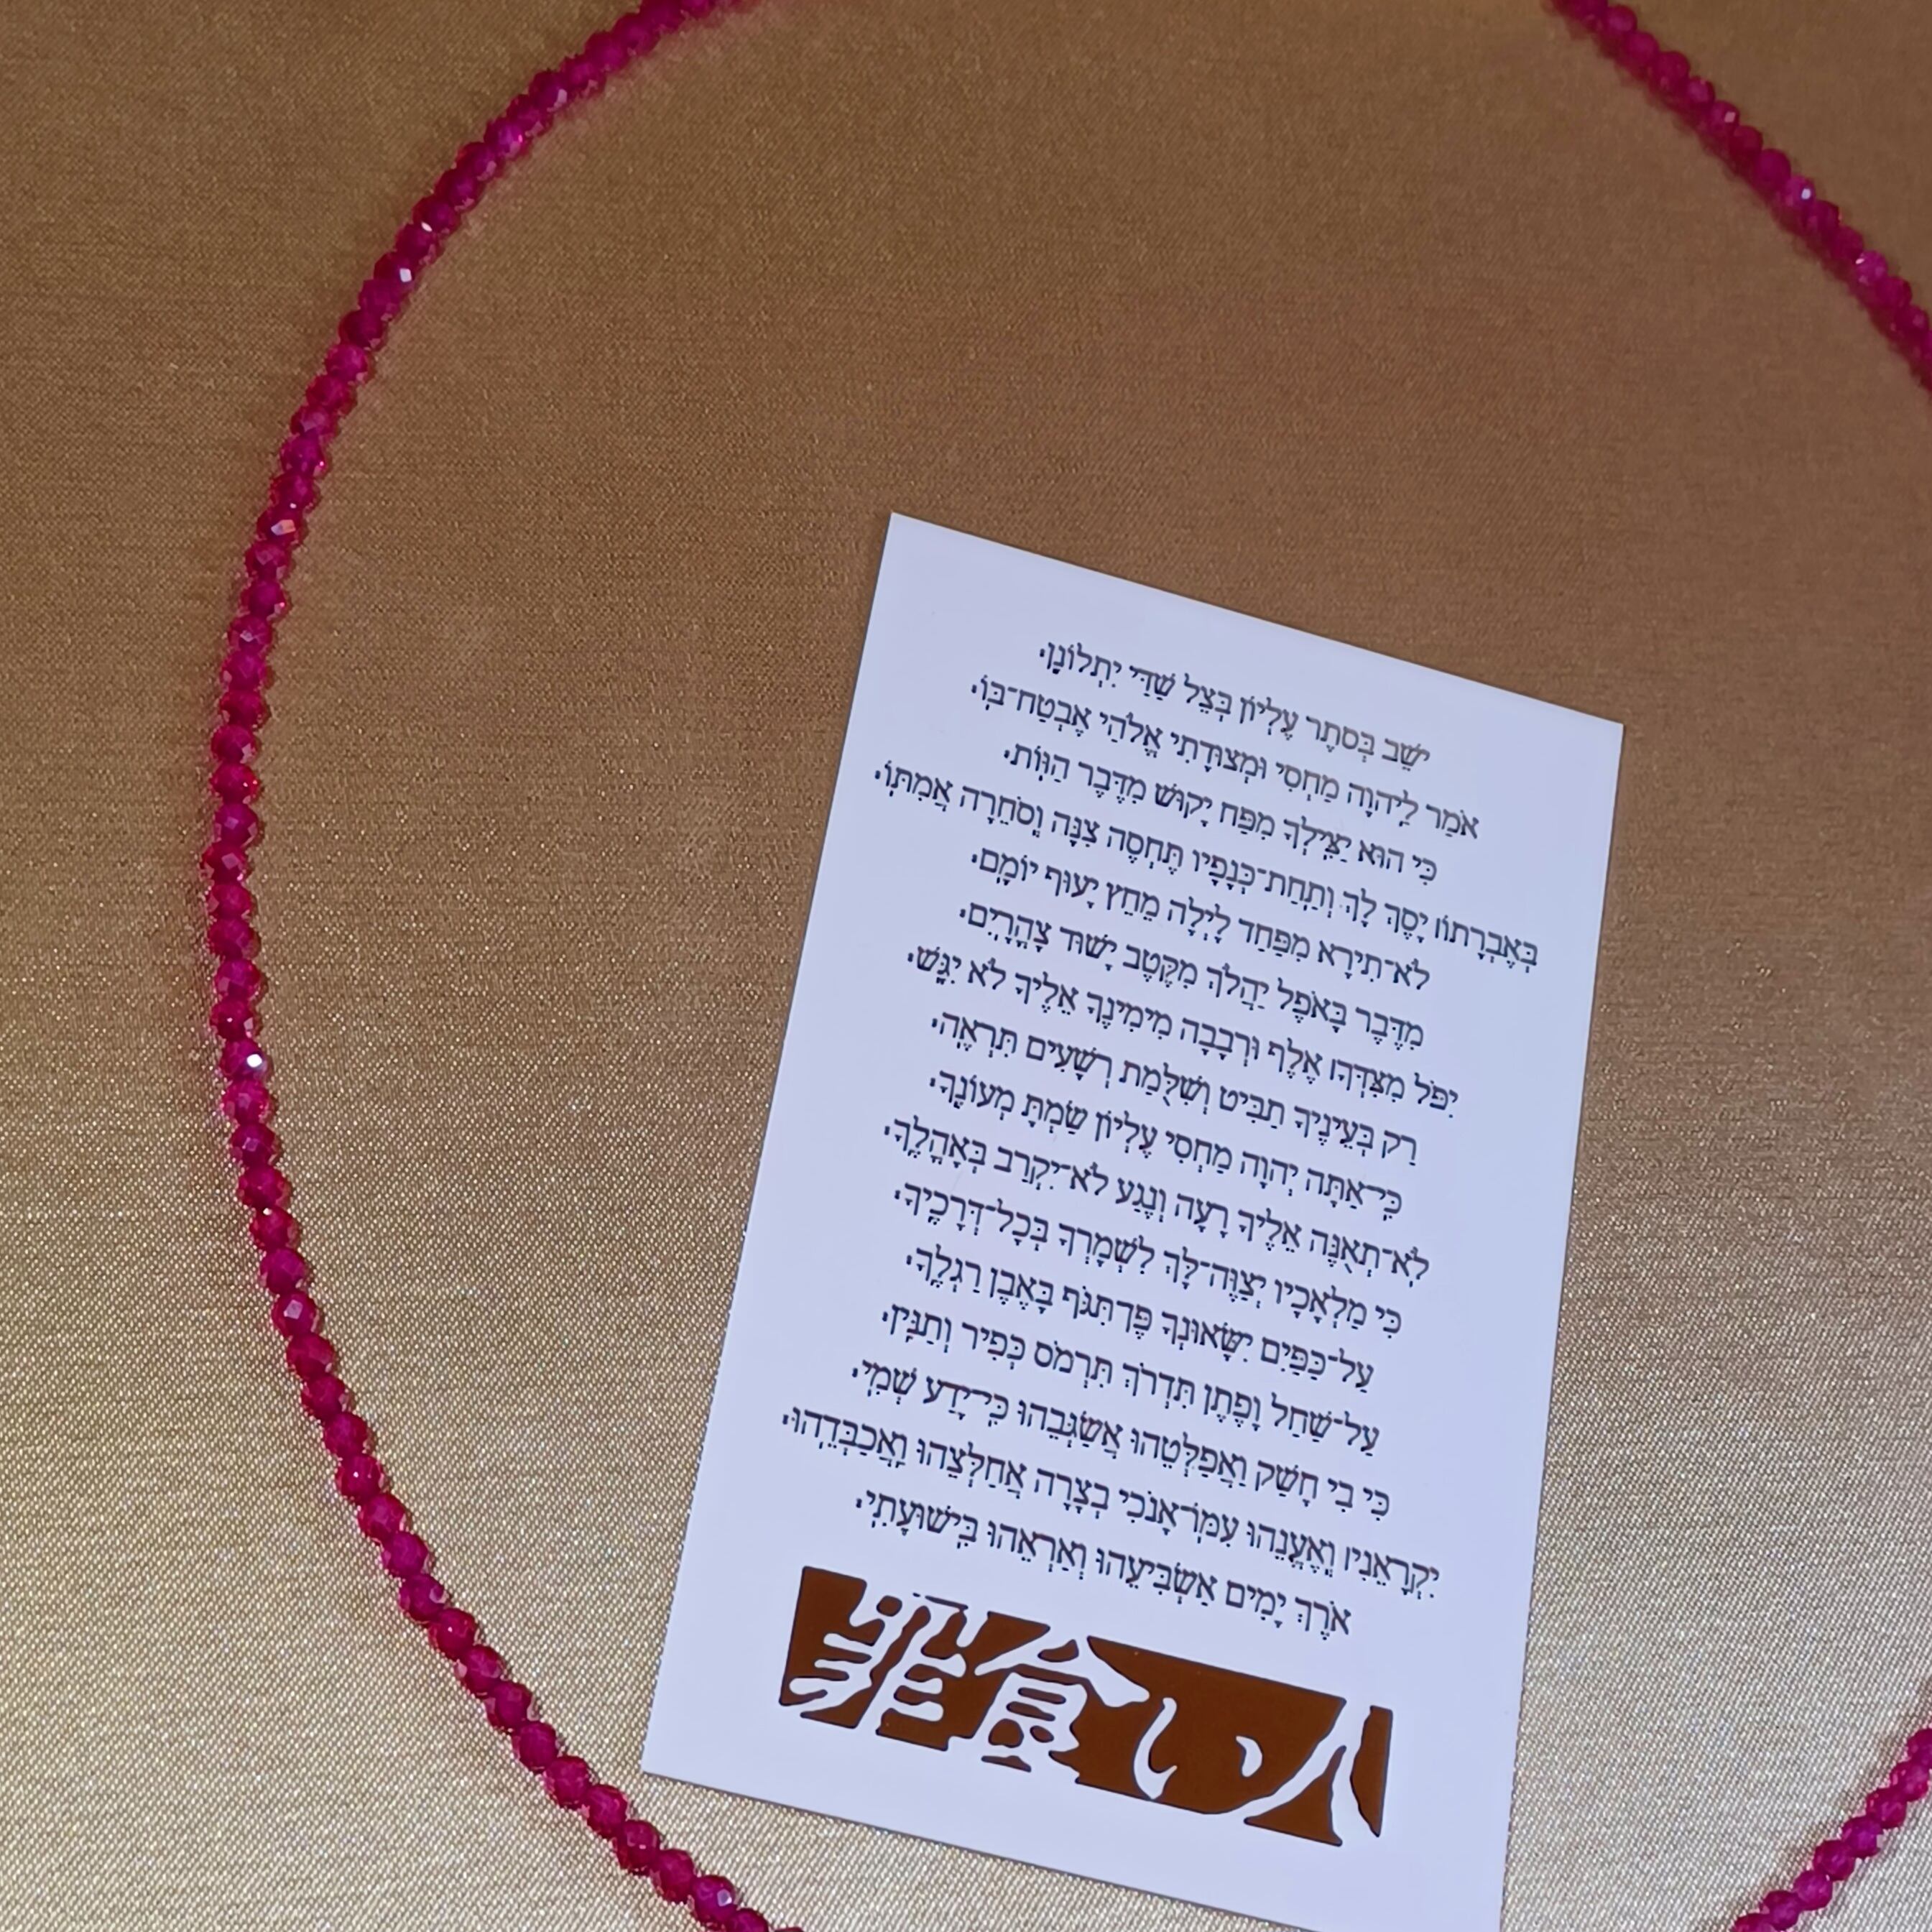 יֹשֵׁב בְּסֵתֶר עֶלְיוֹן בְּצֵל שַׁדַּי יִתְלוֹנָן׃
אֹמַר לַיהוָה מַחְסִי וּמְצוּדָתִי אֱלֹהַי אֶבְטַח־בּוֹ׃
כִּי הוּא יַצִּילְךָ מִפַּח יָקוּשׁ מִדֶּבֶר הַוּוֹת׃
בְּאֶבְרָתוֹ׀ יָסֶךְ לָךְ וְתַחַת־כְּנָפָיו תֶּחְסֶה צִנָּה וְסֹחֵרָה אֲמִתּוֹ׃
לֹא־תִירָא מִפַּחַד לָיְלָה מֵחֵץ יָעוּף יוֹמָם׃
מִדֶּבֶר בָּאֹפֶל יַהֲלֹךְ מִקֶּטֶב יָשׁוּד צָהֳרָיִם׃
יִפֹּל מִצִּדְּךָ׀ אֶלֶף וּרְבָבָה מִימִינֶךָ אֵלֶיךָ לֹא יִגָּשׁ׃
רַק בְּעֵינֶיךָ תַבִּיט וְשִׁלֻּמַת רְשָׁעִים תִּרְאֶה׃
כִּי־אַתָּה יְהוָה מַחְסִי עֶלְיוֹן שַׂמְתָּ מְעוֹנֶךָ׃
לֹא־תְאֻנֶּה אֵלֶיךָ רָעָה וְנֶגַע לֹא־יִקְרַב בְּאָהֳלֶךָ׃
כִּי מַלְאָכָיו יְצַוֶּה־לָּךְ לִשְׁמָרְךָ בְּכָל־דְּרָכֶיךָ׃
עַל־כַּפַּיִם יִשָּׂאוּנְךָ פֶּן־תִּגֹּף בָּאֶבֶן רַגְלֶךָ׃
עַל־שַׁחַל וָפֶתֶן תִּדְרֹךְ תִּרְמֹס כְּפִיר וְתַנִּין׃
כִּי בִי חָשַׁק וַאֲפַלְּטֵהוּ אֲשַׂגְּבֵהוּ כִּי־יָדַע שְׁמִי׃
יִקְרָאֵנִי׀ וְאֶעֱנֵהוּ עִמּוֹ־אָנֹכִי בְצָרָה אֲחַלְּצֵהוּ וַאֲכַבְּדֵהוּ׃
אֹרֶךְ יָמִים אַשְׂבִּיעֵהוּ וְאַרְאֵהוּ בִּישׁוּעָתִי׃
罪食い人